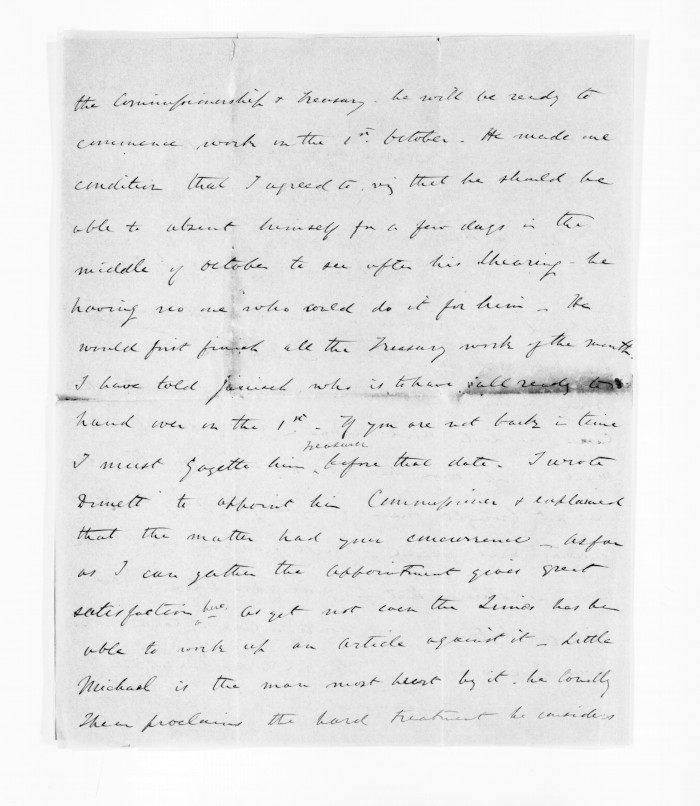 the Commissionership & Treasury - he will be ready to
commence work on the 1st. October - He made one
condition that I agreed to viz that he should be
able to absent himself for a few days in the
middle of October to see after his Shearing - he
having no one who could do it for him - He
would first finish all the Treasury work of the month.
I have told who is to have all ready to
hand over on the 1st. - If you are not back in time
treasurer
I must Gazette him before that date - I wrote
to appoint him Commissioner & explained
that the matter had your concurrence - as far
as I can gather the appointment gives great
satisfaction here, as yet not even the Times has be
able to work up an article against it - Little
Michael is the man most hurt by it. he loudly
I hear proclaims the hard treatment he considers